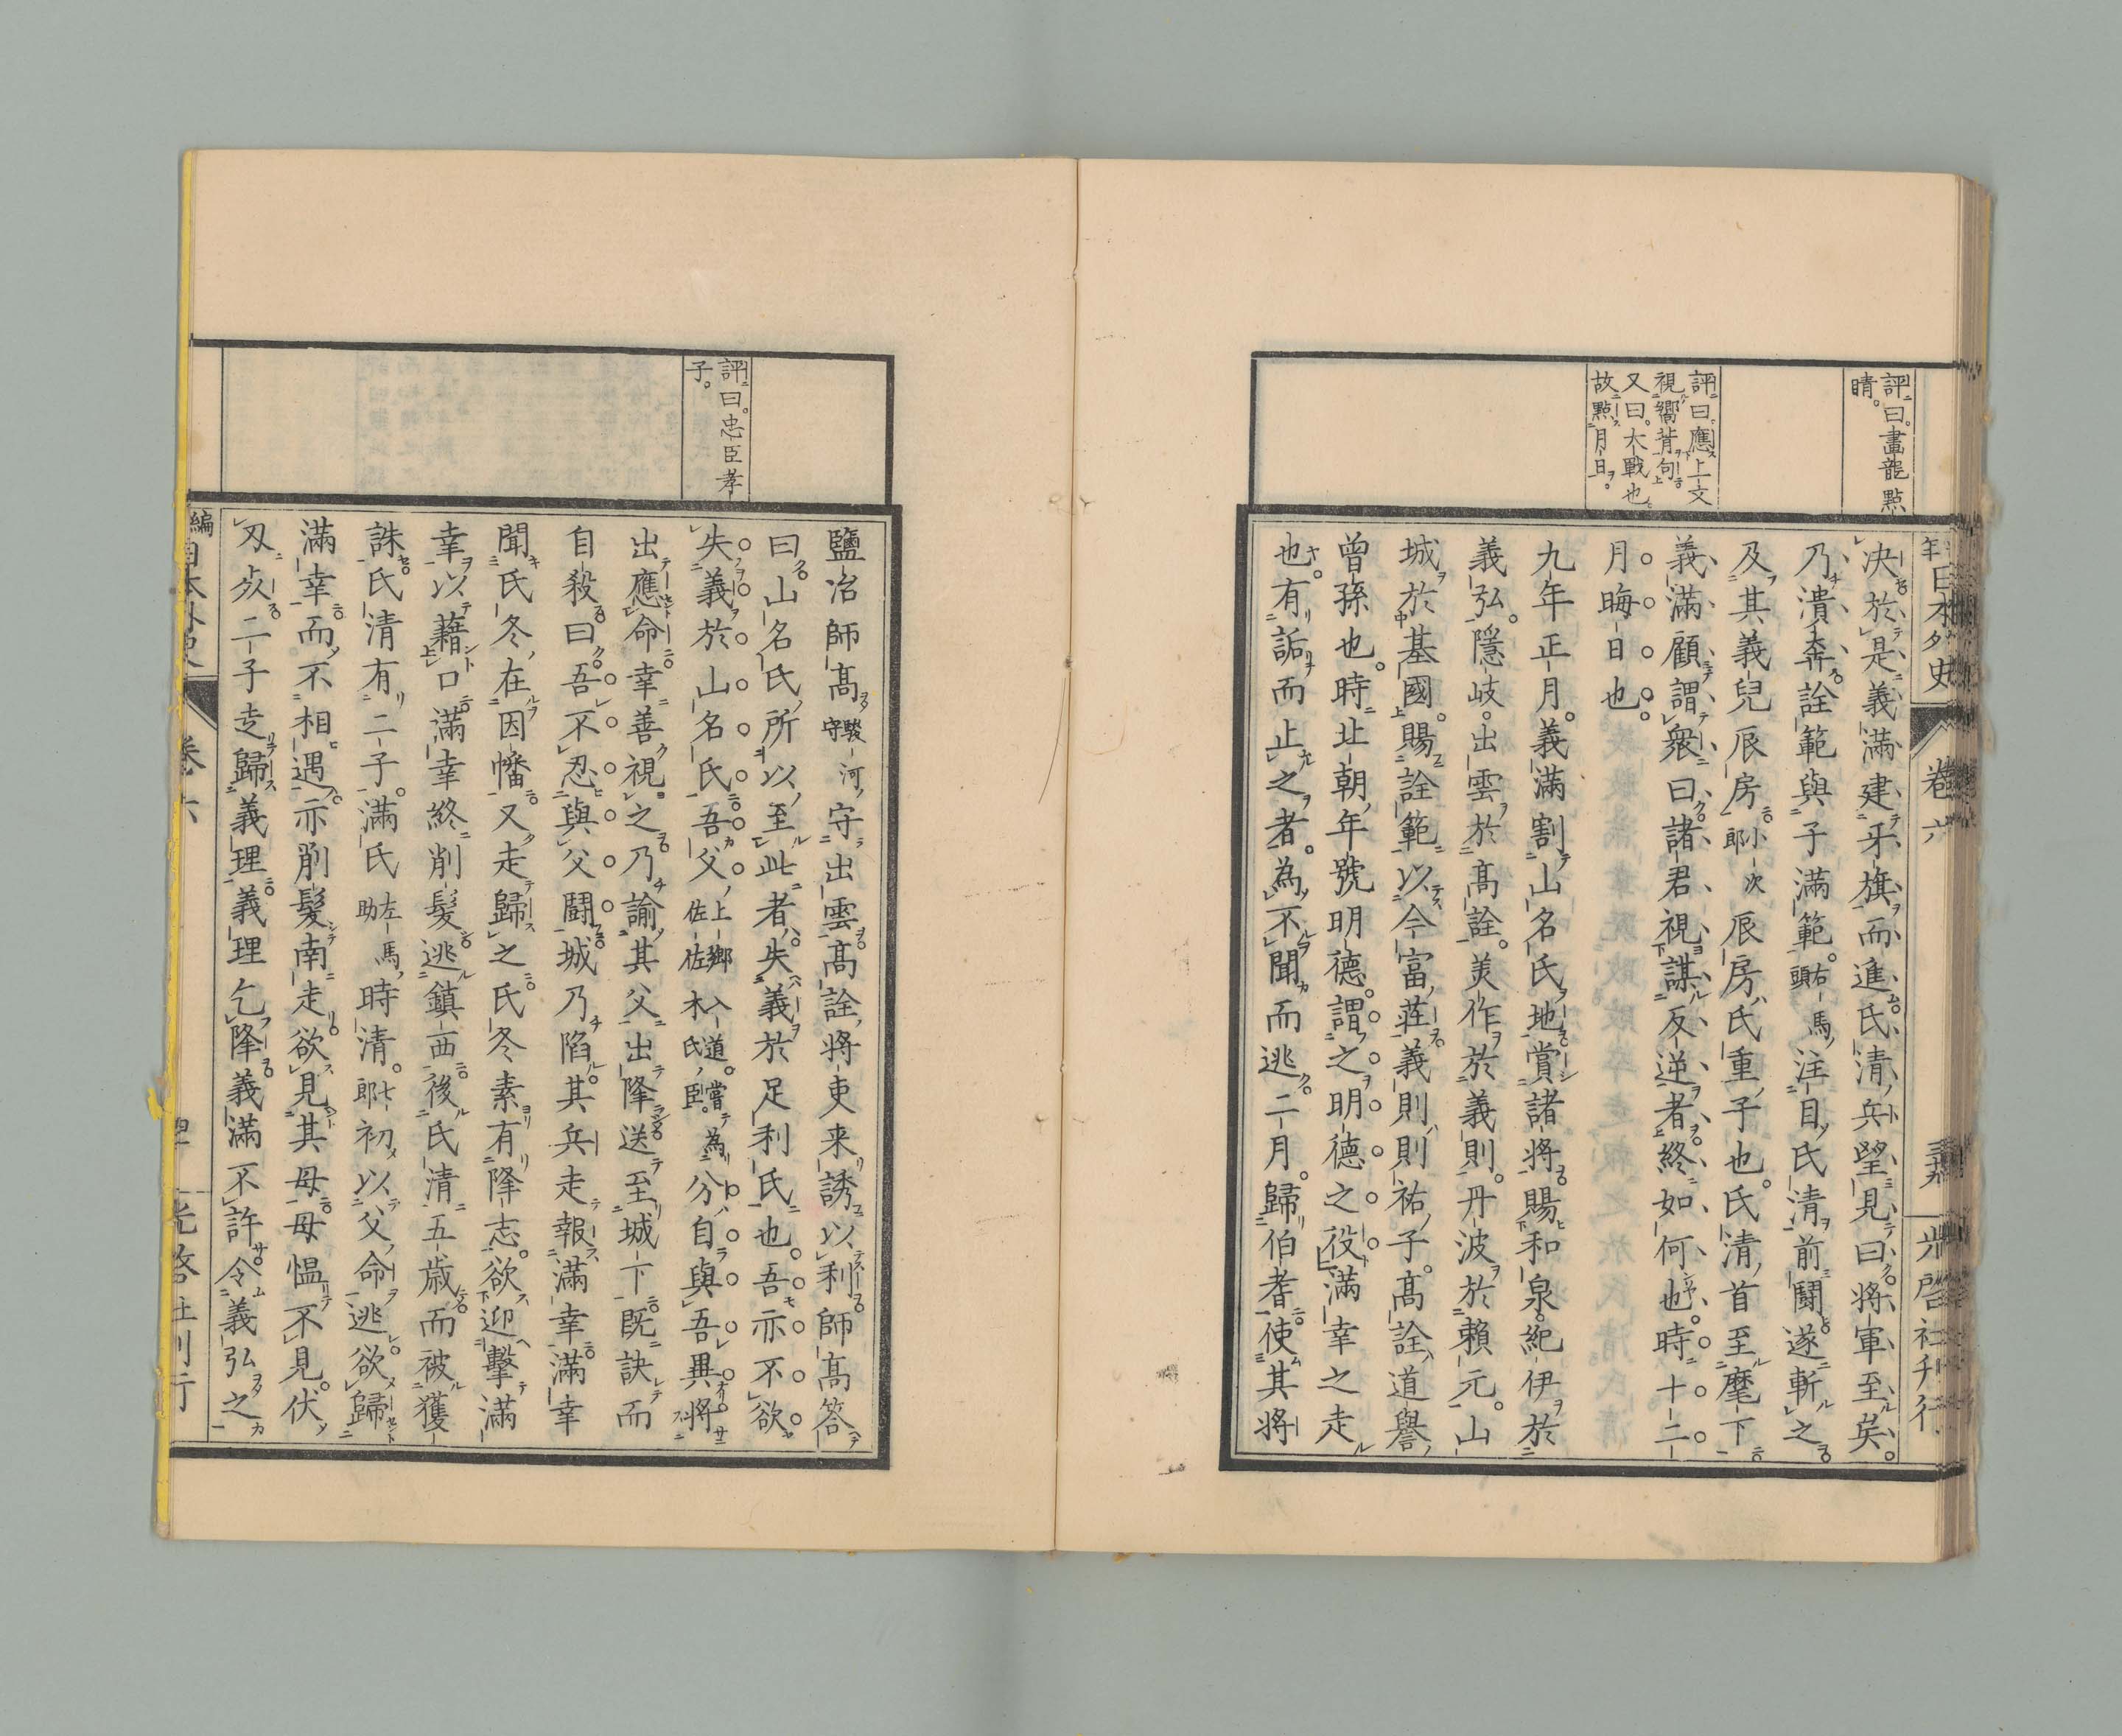 評曰。畫龍點
睛。
評曰。應上文
視嚮背句
又曰。大戰也。
故點月日。
年日本外史
卷六
光啓社刊行
決於是義滿建牙旗而進氏清兵望見曰將軍至矣。
乃潰奔。詮範與子滿範。右馬頭注目氏清前鬪遂斬之
及其義兒辰房小次郎辰房氏重子也。氏清首至麾下
義滿顧謂衆曰諸君視謀反逆者終如何也。時十二
月晦日也。
九年正月。義滿割山名氏地賞諸將賜和泉。紀伊於
義弘。隱岐。出雲於高詮。美作於義則。丹波於賴元。山
城於基國。賜詮範以今富莊義則則祐子。高詮道譽
曾孫也。時北朝年號明德。謂之明德之役滿幸之走
也。有詬而止之者。為不聞而逃二月。歸伯耆使其將
評曰。忠臣孝
子。
鹽冶師高駿河守守出雲高詮將吏来誘以利師高答
曰山名氏所以至此者。失義於足利氏也。吾亦不欲
失義於山名氏吾父上鄉入道。嘗佐佐木氏臣。為分自與吾異將
出應命幸善視之乃諭其父出降送至城下既訣而
自殺曰吾不忍與父鬪城乃陷其兵走報滿幸滿幸
聞氏冬在因幡又走歸之氏冬素有降志。欲迎擊滿
幸以藉口滿幸終削髮逃鎮西後氏清五歲而被獲
誅氏清有二子。滿氏左馬助時清。七郎初以父命逃欲歸
滿幸而不相遇亦削髮南走欲見其母母慍不見。伏
刃死二子走歸義理義理乞降義滿不許令義弘之
編日本外史
卷六
光啓社刊行